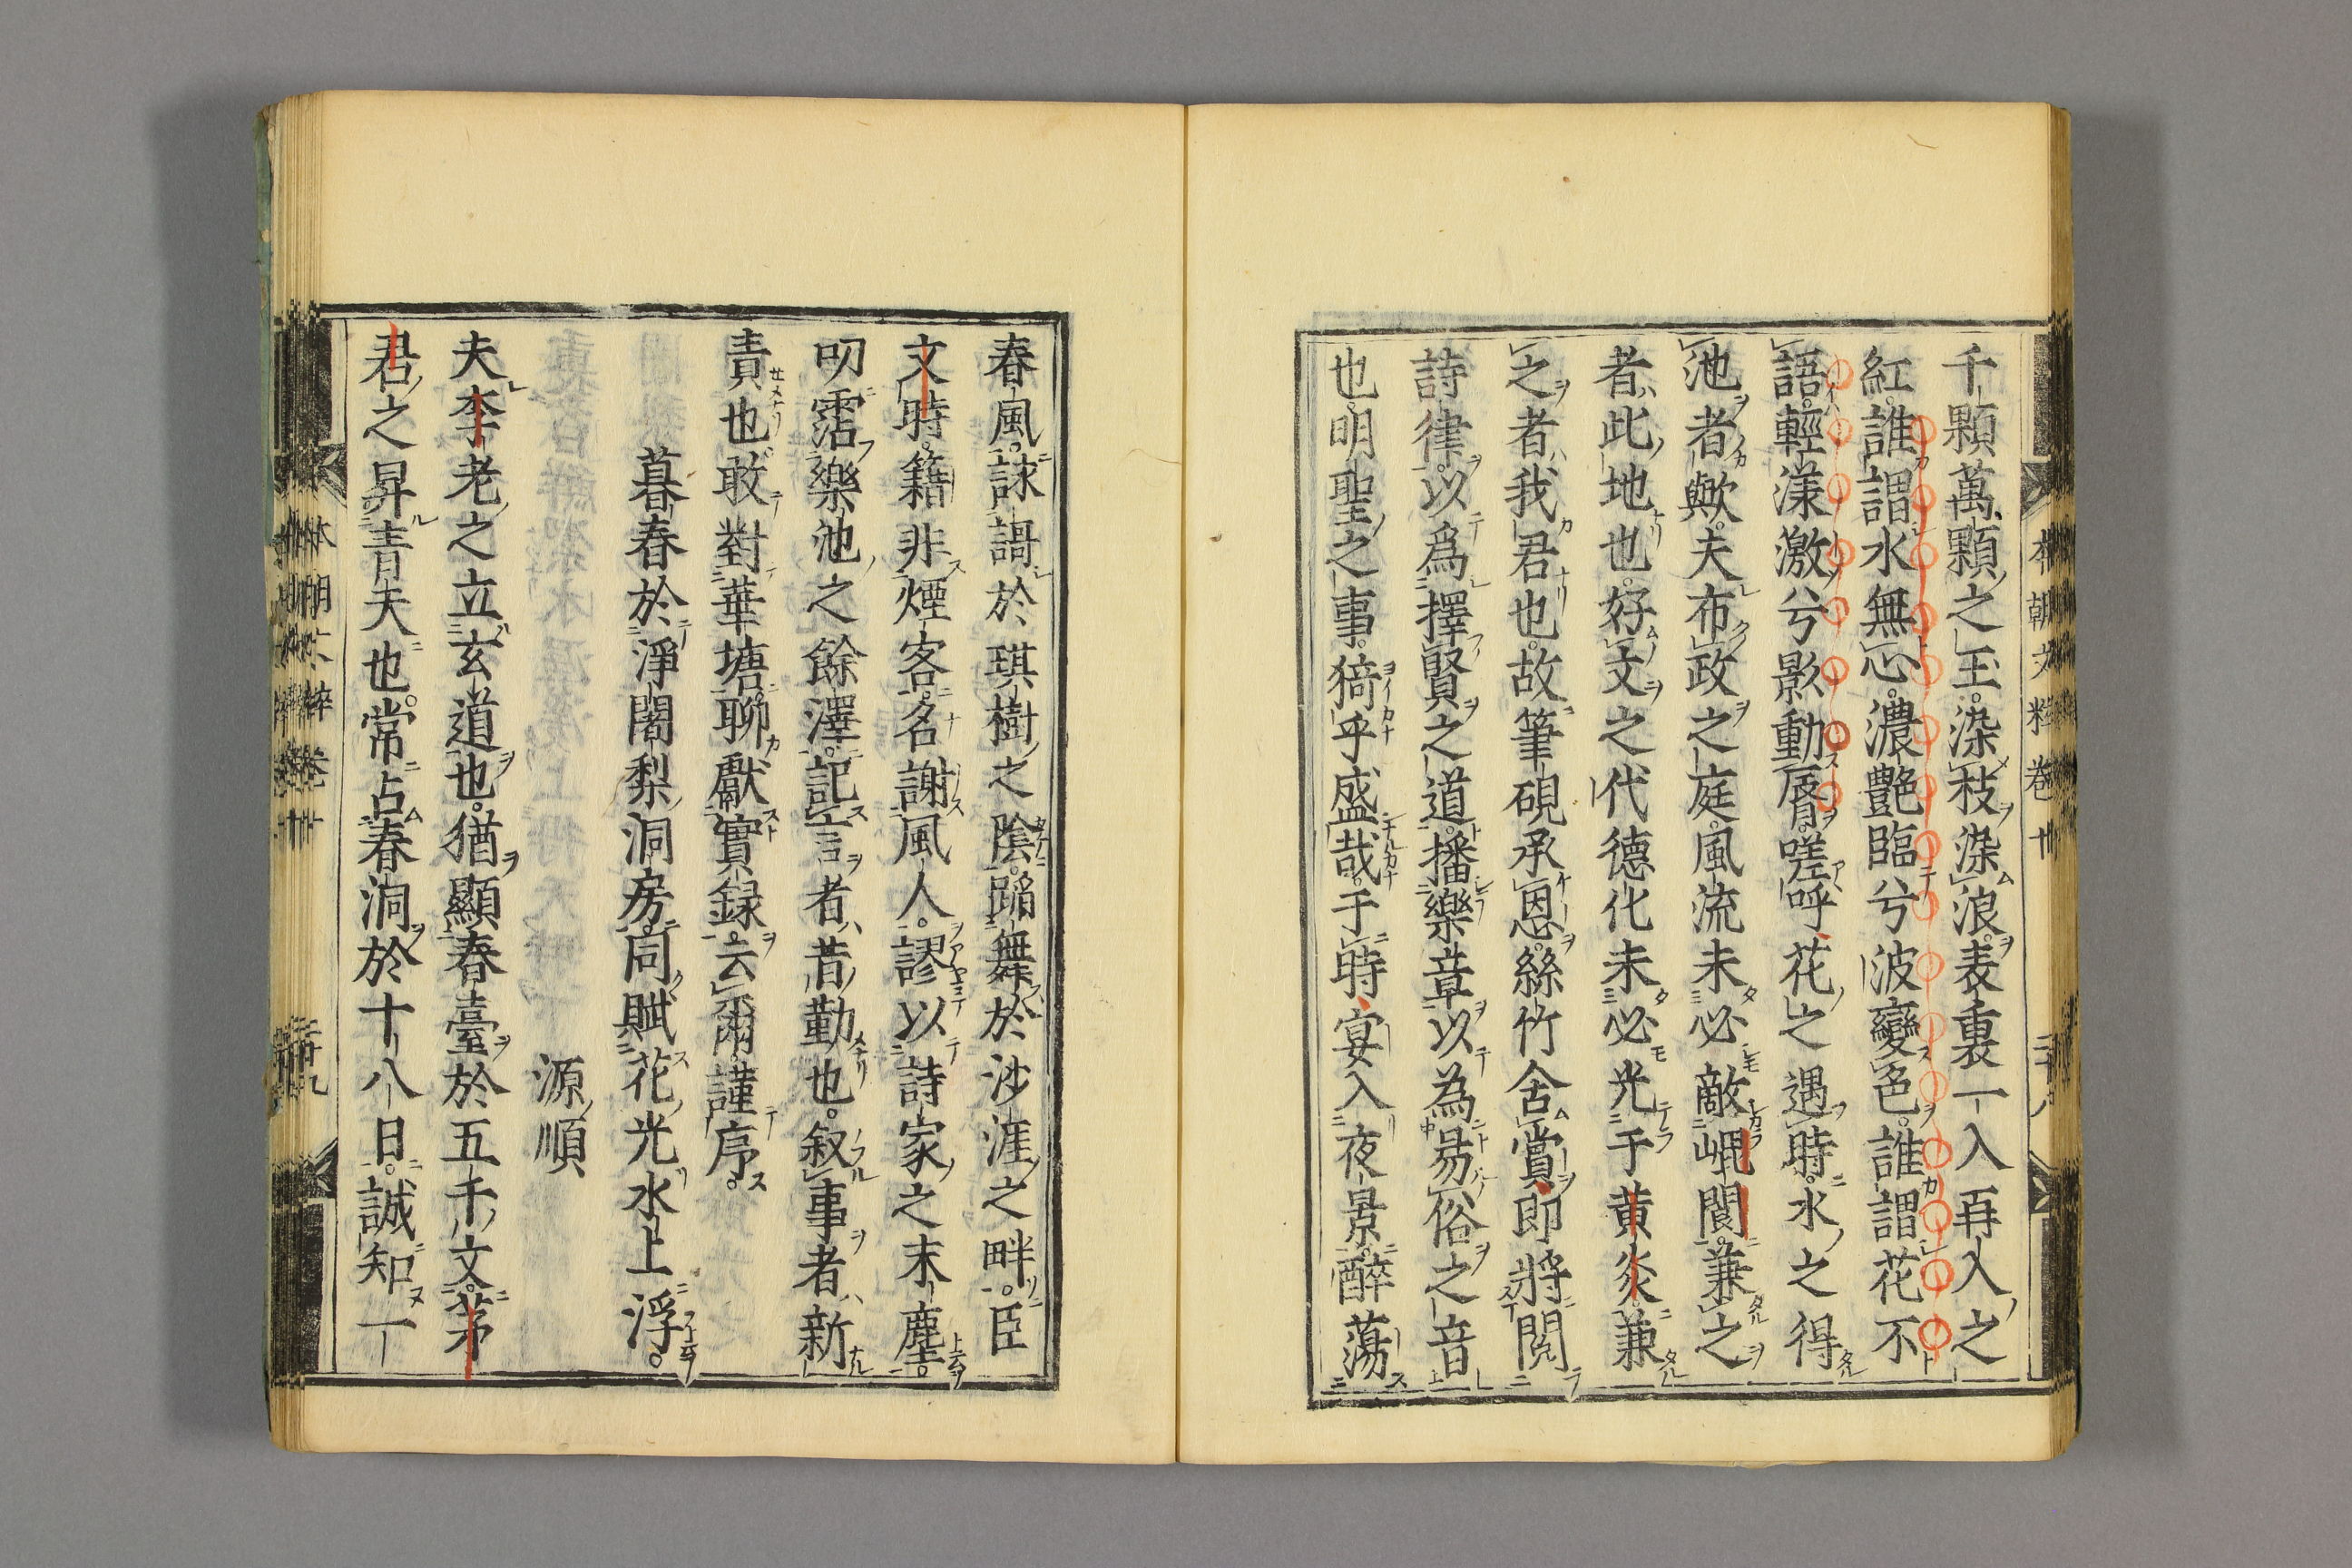 本朝文粹卷十
千顆萬顆之玉。染枝染浪。表裏一入再入之
紅。誰謂水無心。濃艷臨兮波變色。誰謂花不
語。輕漾激兮影動脣。嗟呼花之遇時。水之得
池者歟。夫布政之庭。風流未必敵崐閬。兼之
者此地也。好文之代。德化未必光于黄炎。兼
之者我君也。故筆硯承恩。絲竹含賞。即將閲
詩律以爲擇賢之道。播樂章以為昜俗之音
也。明聖之事。猗乎盛哉。于時宴入夜景。醉蕩
春風。詠謌於琪樹之陰。蹈舞於沙涯之畔。臣
文時。籍非煙客。名謝風人。謬以詩家之末塵。
叨霑樂池之餘澤。記言者昔勤也。叙事者新
責也。敢對華塘。聊獻實録。云爾。謹序。
暮春於淨闍梨洞房。同賦花光水上浮。
源順
夫李老之立玄道也。猶顯春臺於五千文。茅
君之昇青天也。常占春洞於十八日。誠知一
本朝文粹卷十